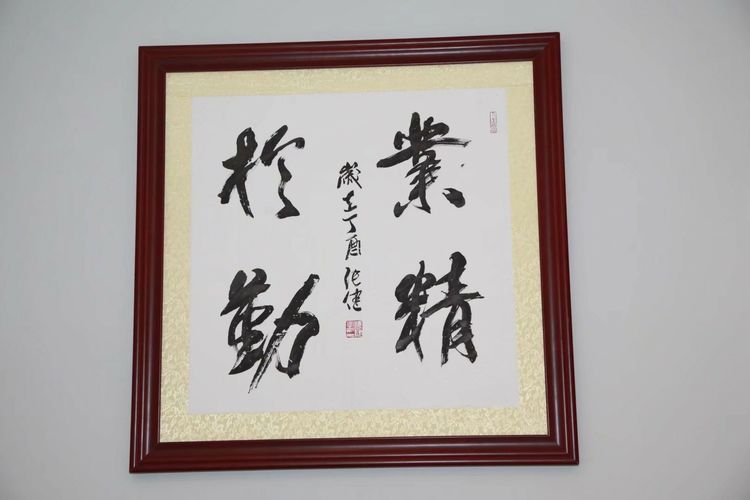 業精
於勤
歲在丁酉張健